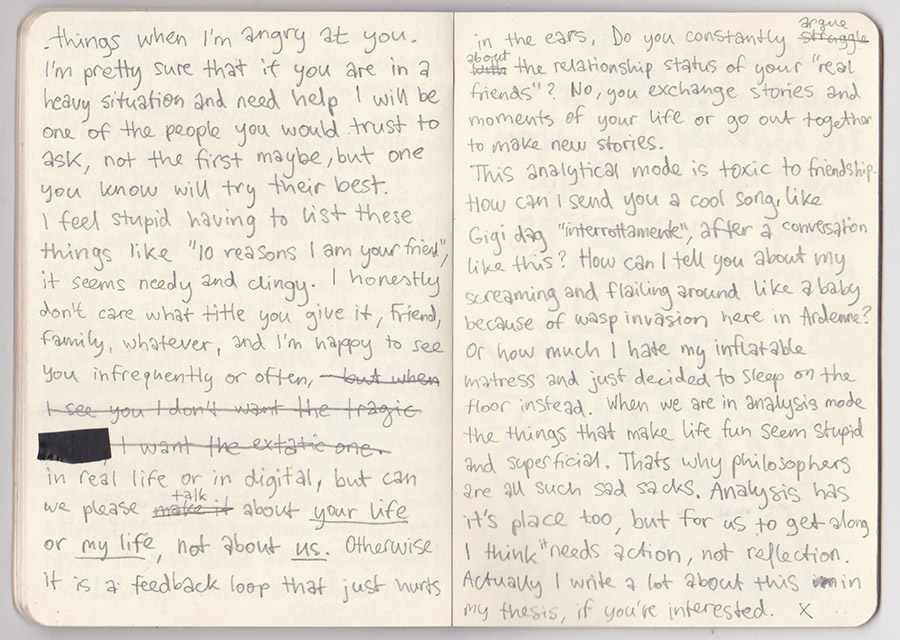 things when I'm angry at you.
I'm pretty sure that if you are in a
heavy situation and need help I will be
one of the people you would trust to
ask, not the first maybe, but one
you know will try their best.
I feel stupid having to list these
things like "10 reasons I am your friend",
it seems needy and clingy. I honestly
don't care what title you give it, friend,
family, whatever, and I'm happy to see
you infrequently or often, but when
I see you I don't want the tragic
, I want the extatic one.
in real life or in digital, but can
talk
we please make it about your life
or my life, not about us. Otherwise
it is a feedback loop that just hurts
argue
in the ears. Do you constantly struggle
about
with the relationship status of your "real
friends"? No, you exchange stories and
moments of your life or go out together
to make new stories.
This analytical mode is toxic to friendship.
How can I send you a cool song, like
Gigi dag "interrottamente", after a conversation
like this? How can I tell you about my
screaming and flailing around like a baby
because of wasp invasion here in Ardenne?
Or how much I hate my inflatable
matress and just decided to sleep on the
floor instead. When we are in analysis mode
the things that make life fun seem stupid
and superficial. Thats why philosophers
are all such sad sacks. Analysis has
it's place too, but for us to get along
I think it needs action, not reflection.
Actually I write a lot about this in
my thesis, if you're interested. X